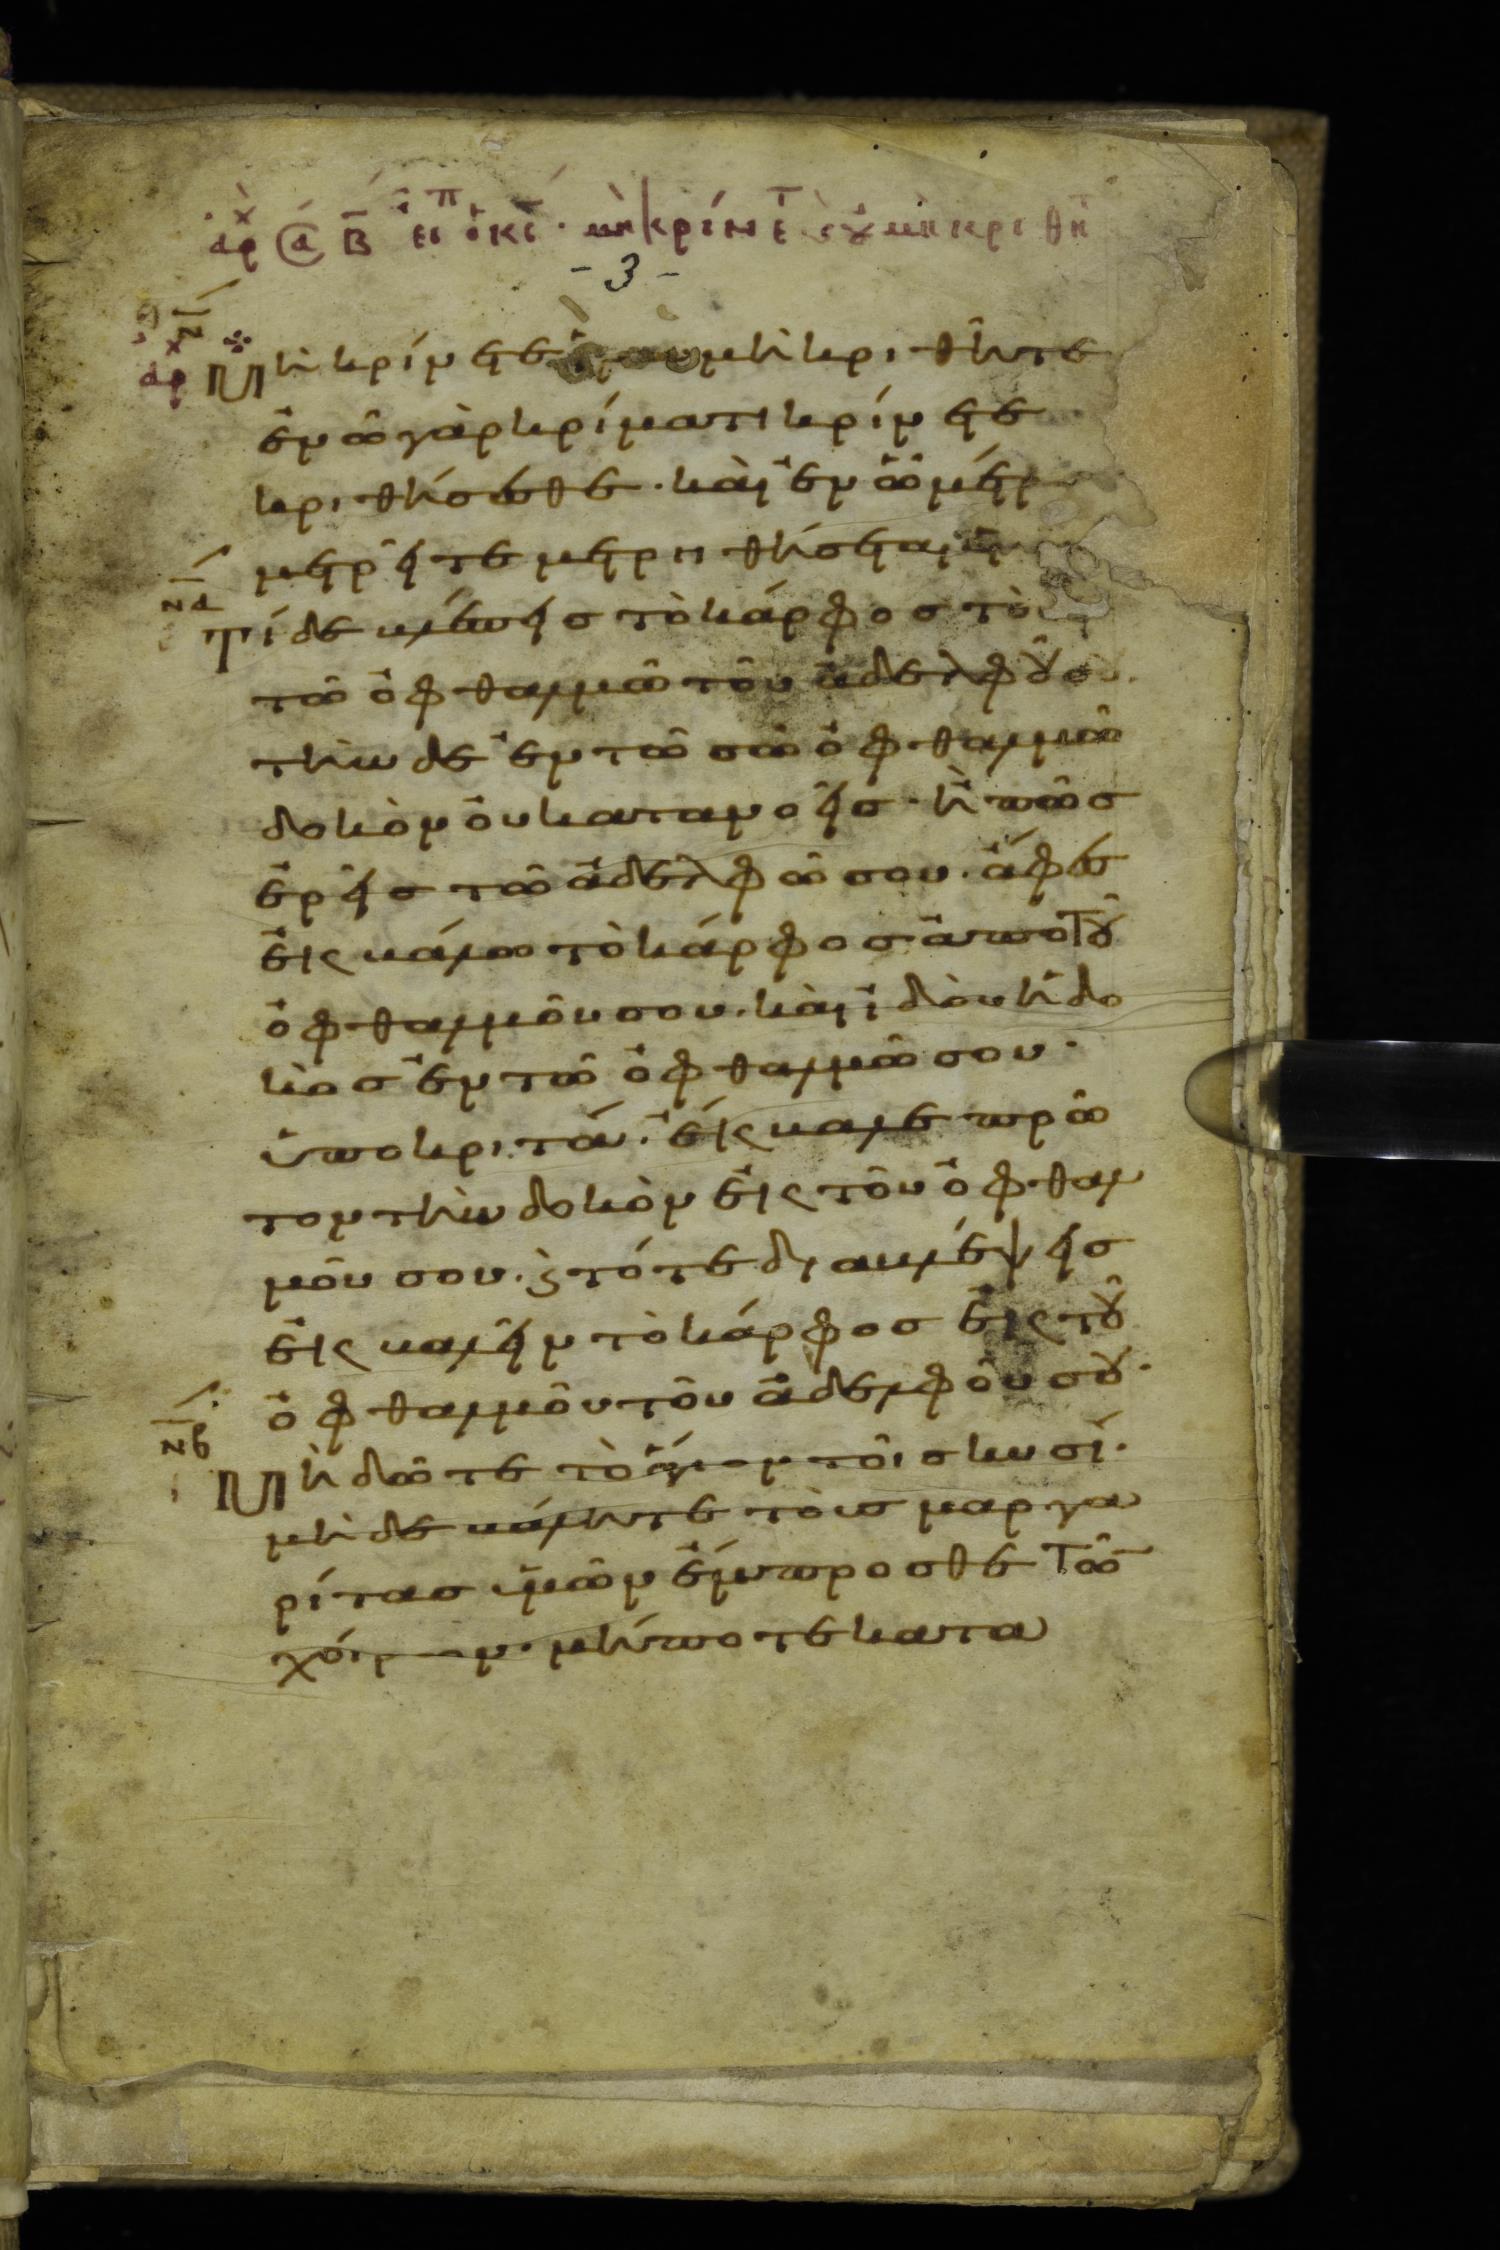 μὴ κρίνετε ἵνα μὴ κριθῆ
- 3 -
Μὴ κρίνετε ἵνα μὴ κριθῆτε
ἐν ὧ γὰρ κρίματι κρίνετε
κριθήσεσθε· καὶ ἐν ὧ μέτρ
μετρεῖτε μετρηθήσεται
να
Τί δὲ βλέπεις τὸ κάρφος τὸ
τῶ ὀφθαλμῶ τοῦ ἀδελφοῦ σου.
τὴν δὲ ἐν τῶ σῶ ὀφθαλμῶ
δοκὸν οὐ κατανοεῖς· ἢ πῶς
ἐρεῖς τῶ ἀδελφῶ σου· ἄφες
ἐκβάλω τὸ κάρφος ἀπὸ τοῦ
ὀφθαλμοῦ σου. καὶ ἰδοὺ ἡ δο
κὸς ἐν τῶ ὀφθαλμῶ σου·
ὑποκριτά· ἔκβαλε πρῶ
τον τὴν δοκὸν ἐκ τοῦ ὀφθαλ
μοῦ σου. ϗ τότε διαβλέψεις
ἐκβαλεῖν τὸ κάρφος ἐκ τοῦ
ὀφθαλμοῦ τοῦ ἀδελφοῦ σου·
νβ
Μὴ δῶτε τὸ ἅγιον τοῖς κυσί·
μὴ δὲ βάλητε τοὺς μαργα
ρίτας ὑμῶν ἔμπροσθε τῶν
χοίρων· μήποτε κατα